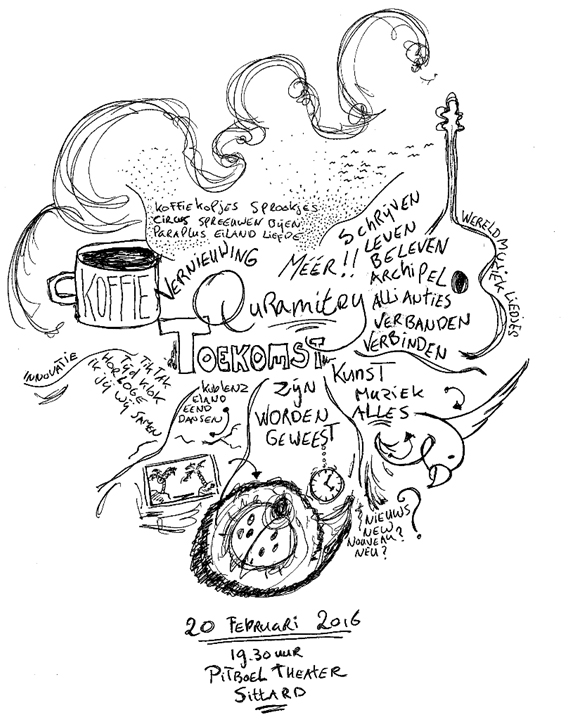 KOFFIEKOPJES SPROOKJES
CIRCUS SPREEUWEN BIJEN
PARAPLUS EILAND LIEFDE
VERNIEUWING
KOFFIE
MÉÉR!!
SCHRIJVEN
LEVEN
BELEVEN
ARCHIPEL
ALLIANTIES
VERBANDEN
VERBINDEN
WERELDMUZIEK LIEDJES
QURAMITZY
TOEKOMST
INNOVATIE
TIKTAK
TIJD KLOK
HORLOGE
IK JIJ WIJ SAMEN
EILAND
EEND
DANSEN
ZIJN
WORDEN
GEWEEST
KUNST
MUZIEK
ALLES
NIEUWS
NEW
NOUVEAU?
NEU?
20 FEBRUARI 2016
19.30 UUR
PITBOEL THEATER
SITTARD